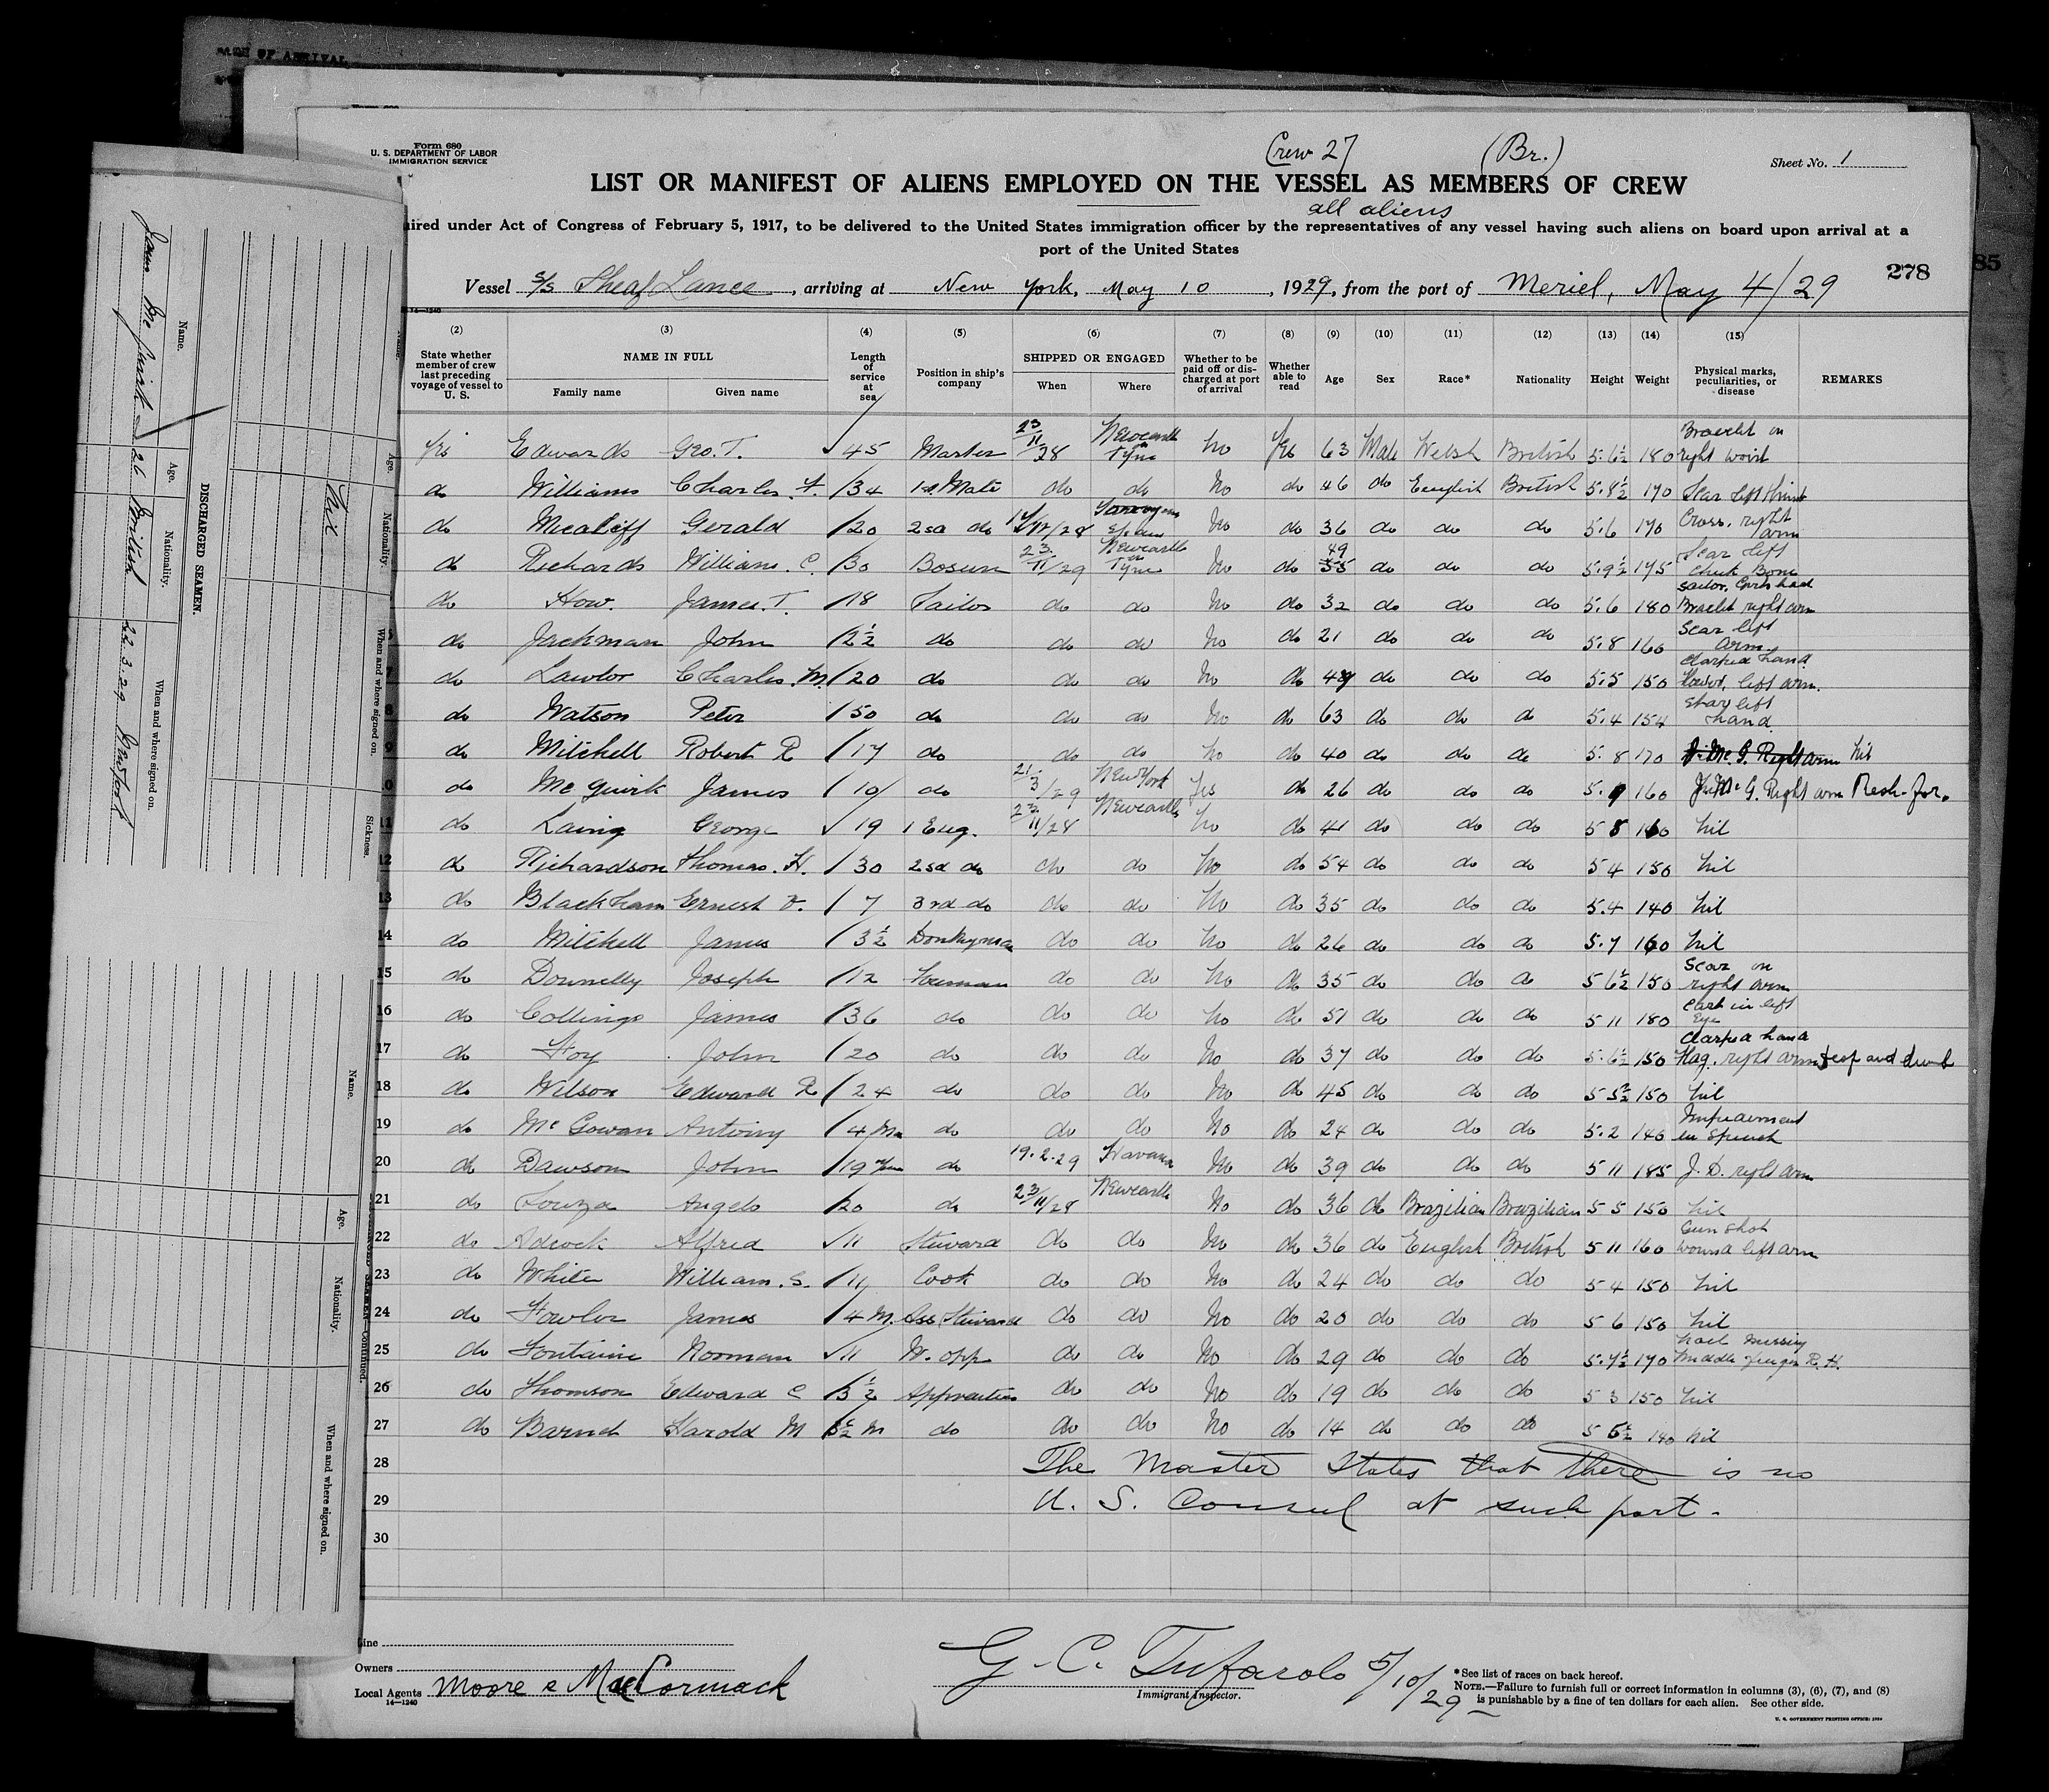 Form 680
U. S. DEPARTMENT OF LABOR
IMMIGRATION SERVICE
Crew 27 (Br.)
Sheet No. 1
LIST OR MANIFEST OF ALIENS EMPLOYED ON THE VESSEL AS MEMBERS OF CREW
all aliens
uired under Act of Congress of February 5, 1917, to be delivered to the United States immigration officer by the representatives of any vessel having such aliens on board upon arrival at a
port of the United States
278 85
Vessel S/S Sheaf Lance, arriving at New York, May 10, 1929, from the port of Meriel, May 4/29
14—1240
(2) (3) (4) (5) (6) (7) (8) (9) (10) (11) (12) (13) (14) (15)
State whether member of crew last preceding voyage of vessel to U. S. NAME IN FULL Family name Given name Length of service at sea Position in ship's company SHIPPED OR ENGAGED When Where Whether to be paid off or discharged at port of arrival Whether able to read Age Sex Race* Nationality Height Weight Physical marks, peculiarities, or disease REMARKS
Yes Edwards Geo. T. 45 Master 23/11/28 Newcastle Tyne No Yes 63 Male Welsh British 5.6½ 180 Bracelet on right wrist
do Williams Charles. F. 34 1st Mate do do No do 46 do English British 5.8½ 170 Scar left
do Gerald 20 2nd do Spain No do 36 do do do 5.6 170 Cross, right arm
do Richards William. C. 30 Bosun 23/11/29 Newcastle on Tyne No do 49 55 do do do 5.9½ 175 Scar left Cheek Bone
do How. James. T. 18 Sailor do do No do 32 do do do 5.6 180 Sailor, Girls head Bracelet right arm
6 do Jackman John 2½ do do do No do 21 do do do 5.8 160 Scar left arm
7 do Lawlor Charles. M. 20 do do do No do 49 do do do 5.5 150 Clasped hand left arm.
8 do Watson Peter 50 do do do No do 63 do do do 5.4 154 Star left hand
9 do Mitchell Robert R 17 do do do No do 40 do do do 5.8 170 J. Mc G. Right arm Nil
10 do McGuirk James 10 do 21/3/29 New York Yes do 26 do do do 5.9 160 J. Mc G. Right arm Resh-for.
11 do Laing George 19 1 Eng. 23/11/28 Newcastle No do 41 do do do 5 8 160 Nil
12 do Richardson Thomas. H. 30 2nd do do do No do 54 do do do 5 4 150 Nil
13 do Blackham Ernest 7 3rd do do do No do 35 do do do 5.4 140 Nil
14 do Mitchell James 3½ Donkeyman do do No do 26 do do do 5.7 160 Nil
15 do Donnelly Joseph 12 Fireman do do No do 35 do do do 5 6½ 150 Scar on right arm
16 do Collings James 36 do do do No do 51 do do do 5 11 180 Cast in left Eye
17 do Foy John 20 do do do No do 37 do do do 5.6½ 150 Clasped hand Flag. right arm deaf and dumb
18 do Wilson Edward R 24 do do do No do 45 do do do 5 5½ 150 Nil
19 do McGowan Antony 4 Ms do do do No do 24 do do do 5.2 140 Impairment in Speech
20 do Dawson John 19 do 19.2.29 Havana No do 39 do do do 5 11 185 J. D. right arm
21 do Souza Angelo 20 do 23/11/28 Newcastle No do 36 do Brazilian Brazilian 5 5 150 Nil
22 do Adcock Alfred 11 Steward do do No do 36 do English British 5 11 160 Gun shot wound left arm
23 do White William. S. 11 Cook do do No do 24 do do do 5 4 150 Nil
24 do Fowler James 4 M. Ass Steward do do No do 20 do do do 5 6 150 Nil
25 do Fontaine Norman 11 W. opp do do No do 29 do do do 5.7½ 170 Nail missing Middle finger R. H.
26 do Thomson Edward C 3½ Apprentice do do No do 19 do do do 5 3 150 Nil
27 do Harold M M do do do No do 14 do do do 140 Nil
28 The Master States that there is no
29 U. S. Consul at such port.
30
Line
Owners
Local Agents Moore & MacCormack
14—1240
G. C. Tufarolo 5/10/29
Immigrant Inspector.
*See list of races on back hereof.
NOTE.—Failure to furnish full or correct information in columns (3), (6), (7), and (8)
is punishable by a fine of ten dollars for each alien. See other side.
U. S. GOVERNMENT PRINTING OFFICE
DISCHARGED SEAMEN.
Name. Age. Nationality. When and where signed on.
James McGuirk 26 British 22.3.29 New York
Name. Age. Nationality. When and where signed on. Sickness.
Nil
Name. Age. Nationality. When and where signed on.